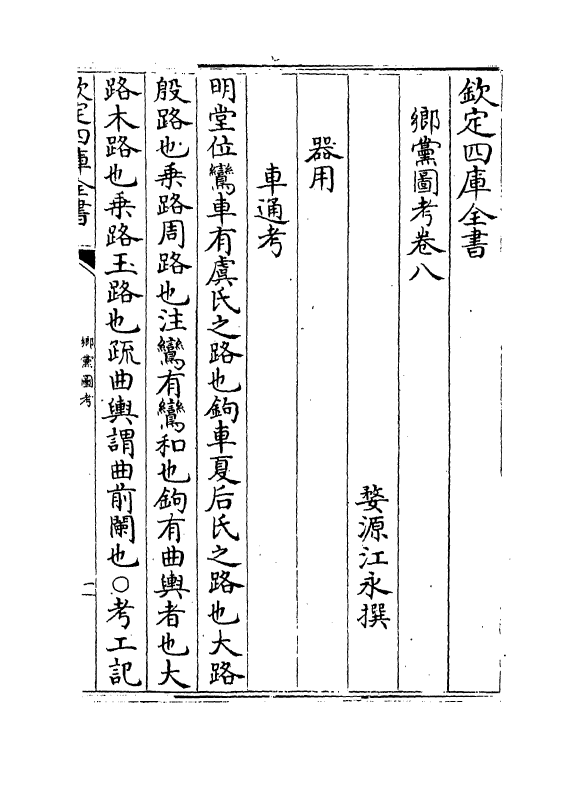 欽定四庫全書
鄉黨圖考卷八
婺源江永撰
器用
車通考
明堂位鸞車有虞氏之路也鉤車夏后氏之路也大路
殷路也乗路周路也注鸞有鸞和也鉤有曲輿者也大
路木路也乗路玉路也疏曲輿謂曲前闌也○考工記
欽定四庫全書
鄉黨圖考
一